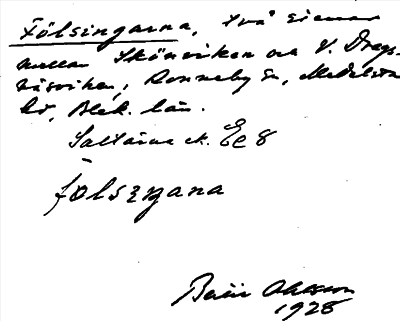 Fölsingarna, två stenar
mellan Skönviken och V. Drags-
näsviken, Ronneby sn, Medelsta
hd, Blek. län.
Saltsjöns ek. Ec 8
fölseŋana
Bertil Ohlsson
1928